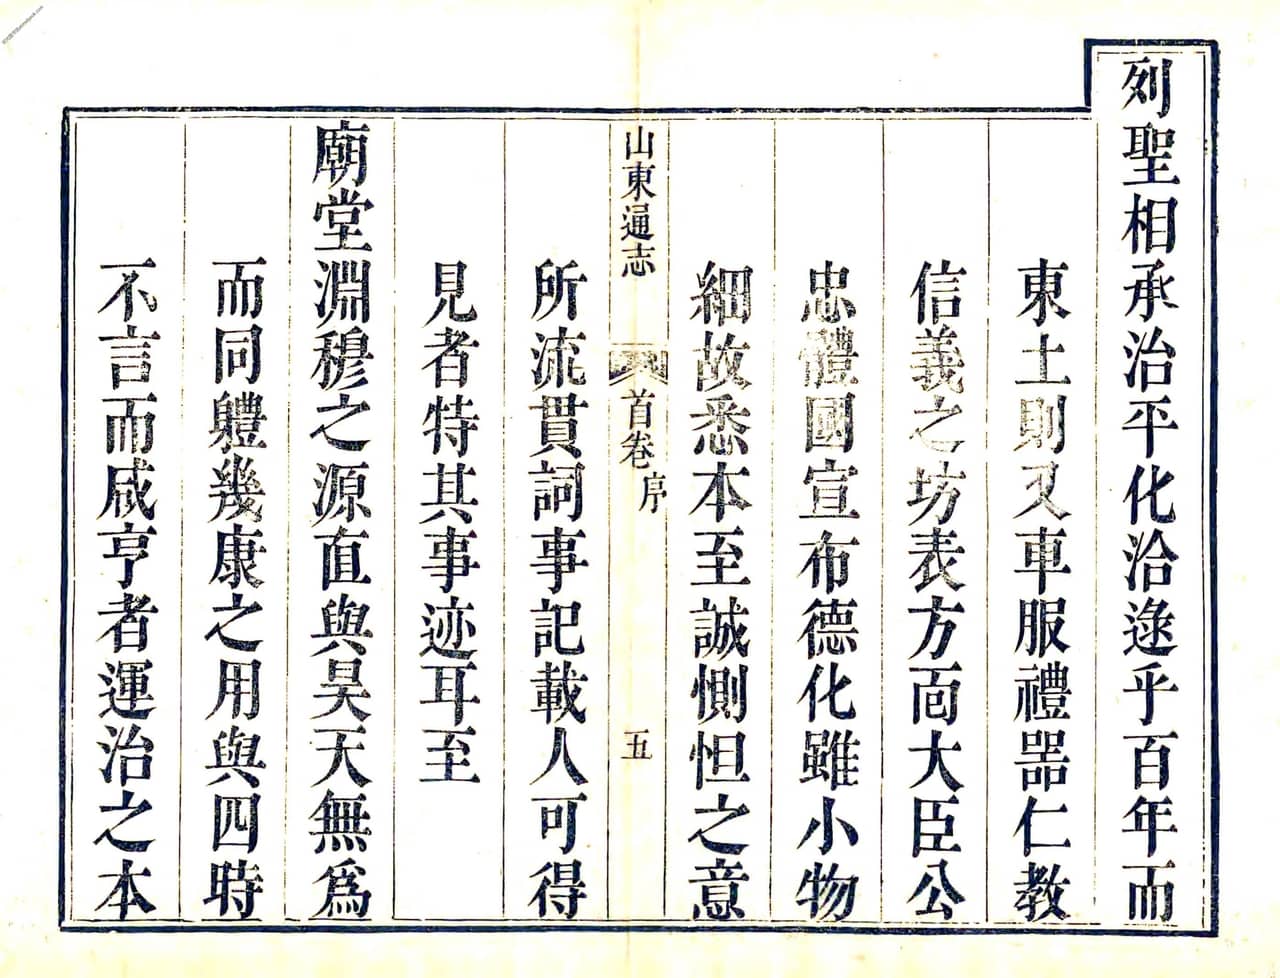 列聖相承治平化洽逮乎百年而
東土則又車服禮器仁教
信義之坊表方面大臣公
忠體國宣布德化雖小物
細故悉本至誠惻怛之意
山東通志
首卷 序
五
所流貫詞事記載人可得
見者特其事迹耳至
廟堂淵穆之源直與昊天無為
而同體幾康之用與四時
不言而咸亨者運治之本